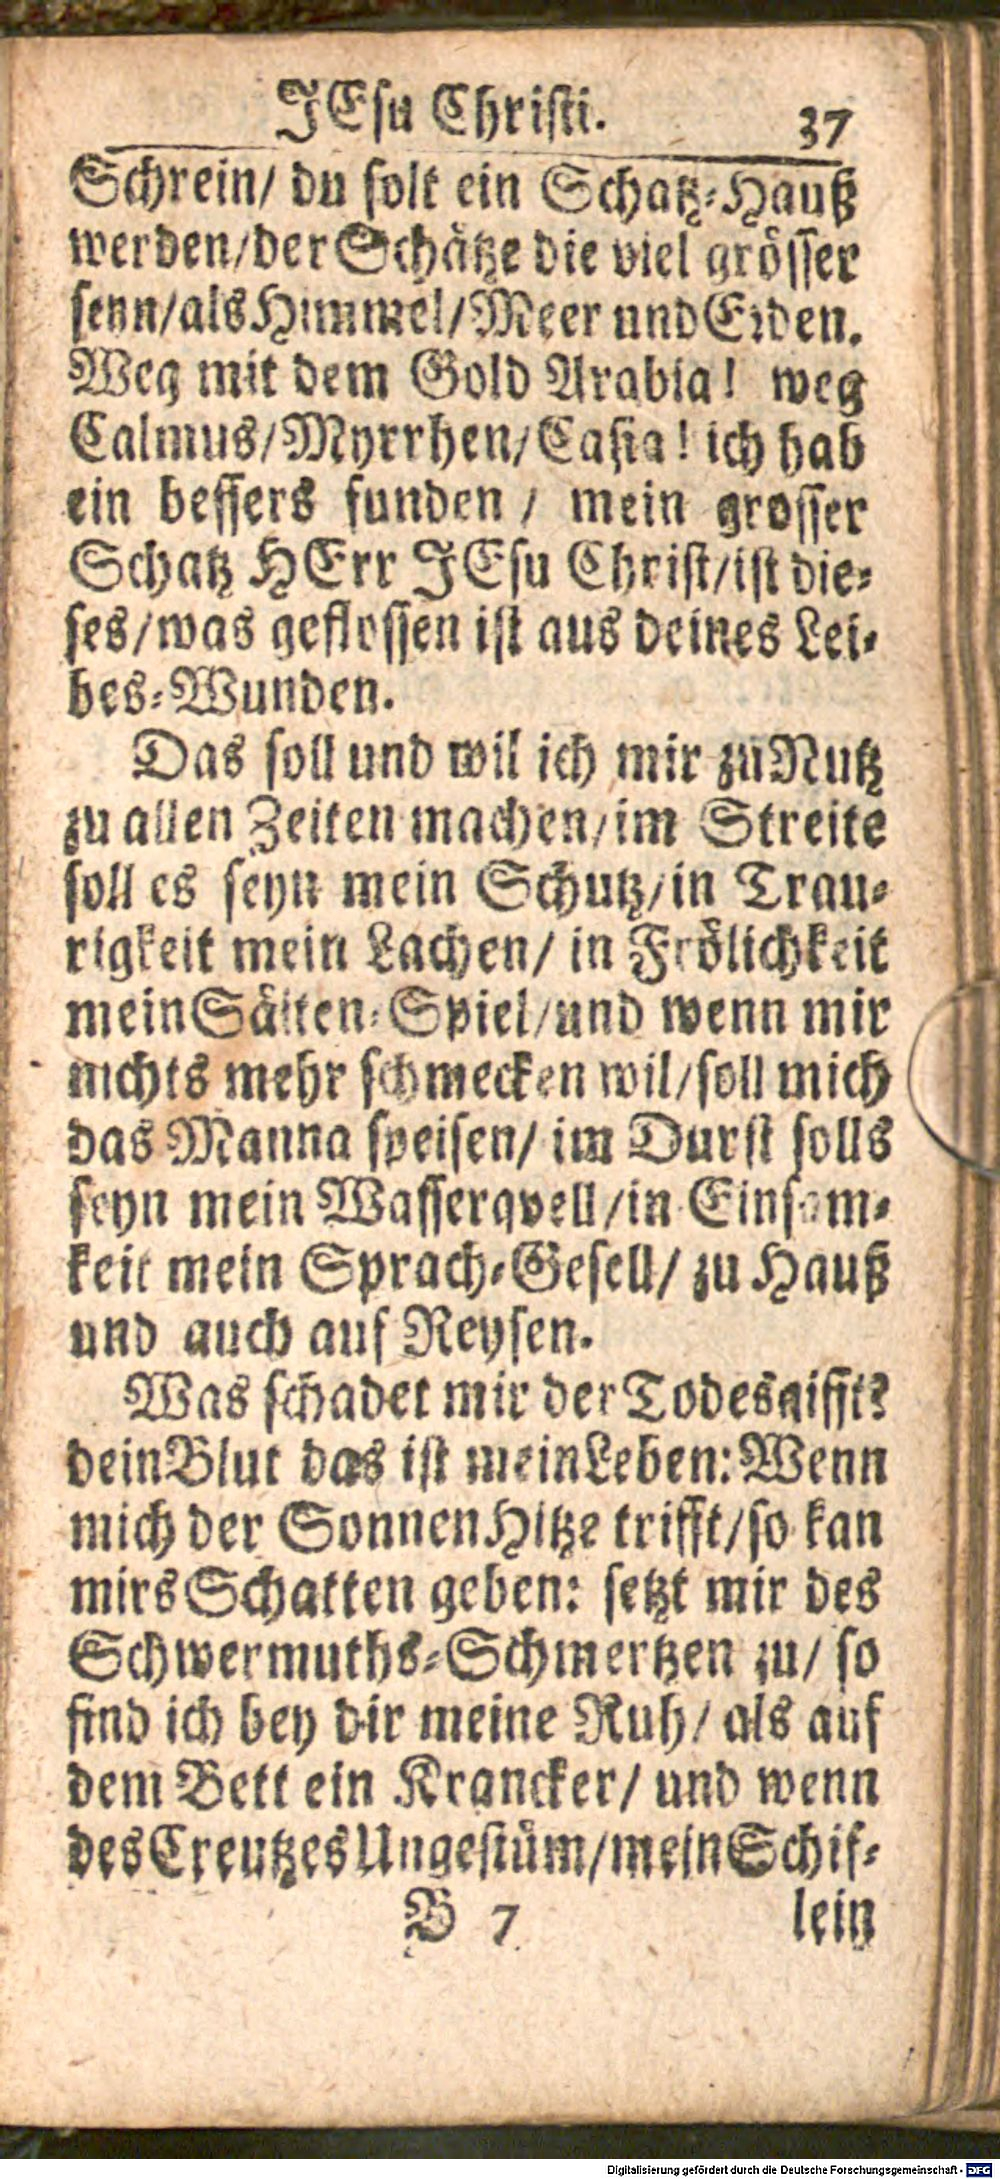 JEsu Christi. 37
Schrein/ du solt ein Schatz-Hauß
werden/der Schätze die viel grösser
seyn/als Himmel/Meer und Erden.
Weg mit dem Gold Arabia! weg
Calmus/Myrrhen/Casia! ich hab
ein bessers funden / mein grosser
Schatz HErr JEsu Christ/ist die-
ses/was geflossen ist aus deines Lei-
bes-Wunden.
Das soll und wil ich mir zu Nutz
zu allen Zeiten machen/im Streite
soll es seyn mein Schutz/in Trau-
rigkeit mein Lachen/ in Frölichkeit
mein Säiten-Spiel/und wenn mir
nichts mehr schmecken wil/soll mich
das Manna speisen/ im Durst solls
seyn mein Wasserqvell/in Einsam-
keit mein Sprach-Gesell/ zu Hauß
und auch auf Reysen.
Was schadet mir der Todesgifft?
dein Blut das ist mein Leben: Wenn
mich der Sonnen Hitze trifft/so kan
mirs Schatten geben: setzt mir des
Schwermuths-Schmertzen zu/ so
find ich bey dir meine Ruh/ als auf
dem Bett ein Krancker/ und wenn
des Creutzes Ungestüm/mein Schif-
B 7 lein
Digitalisierung gefördert durch die Deutsche Forschungsgemeinschaft - DFG